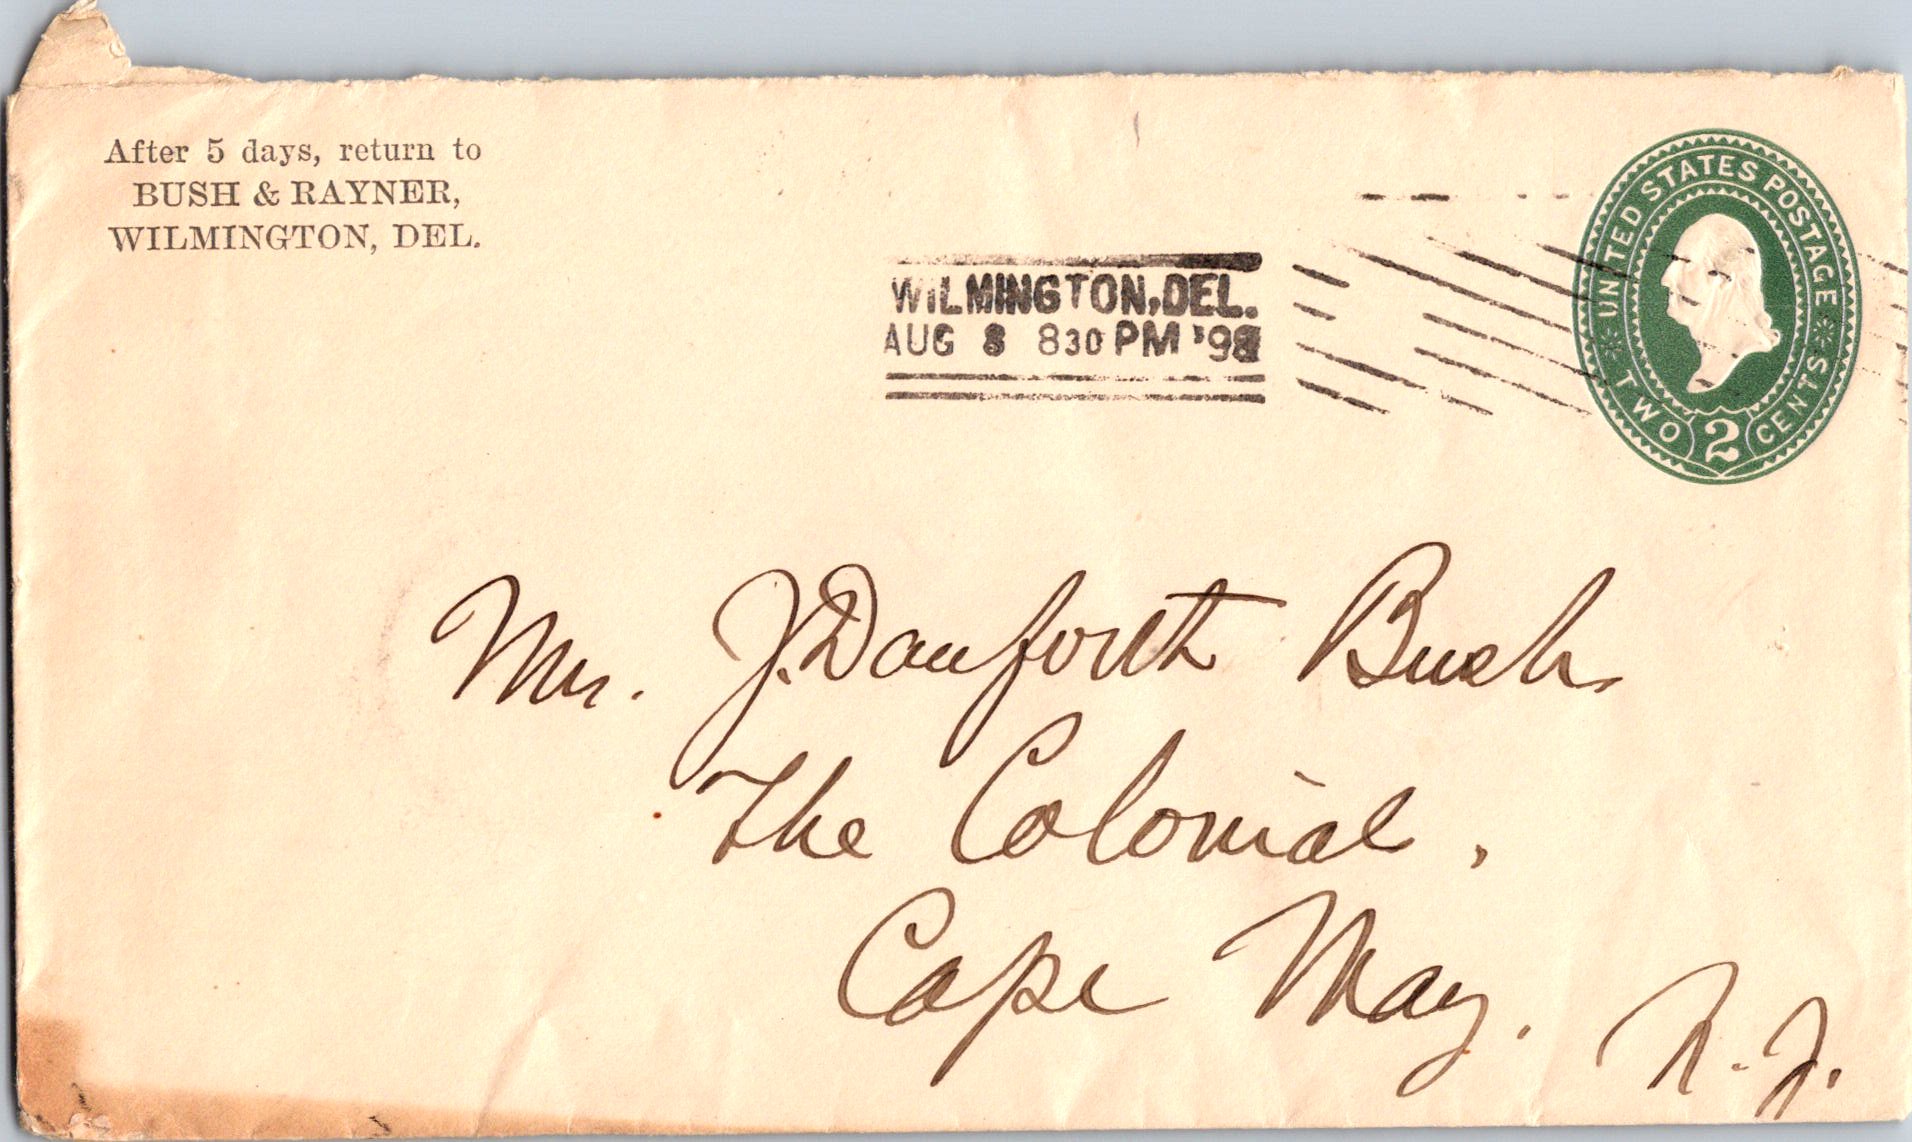 After 5 days, return to
BUSH & RAYNER,
WILMINGTON, DEL.
WILMINGTON, DEL.
AUG 8 830 PM '98
UNITED STATES POSTAGE
TWO 2 CENTS
Mr. J. Danforth Bush
The Colonial,
Cape May.
N. J.